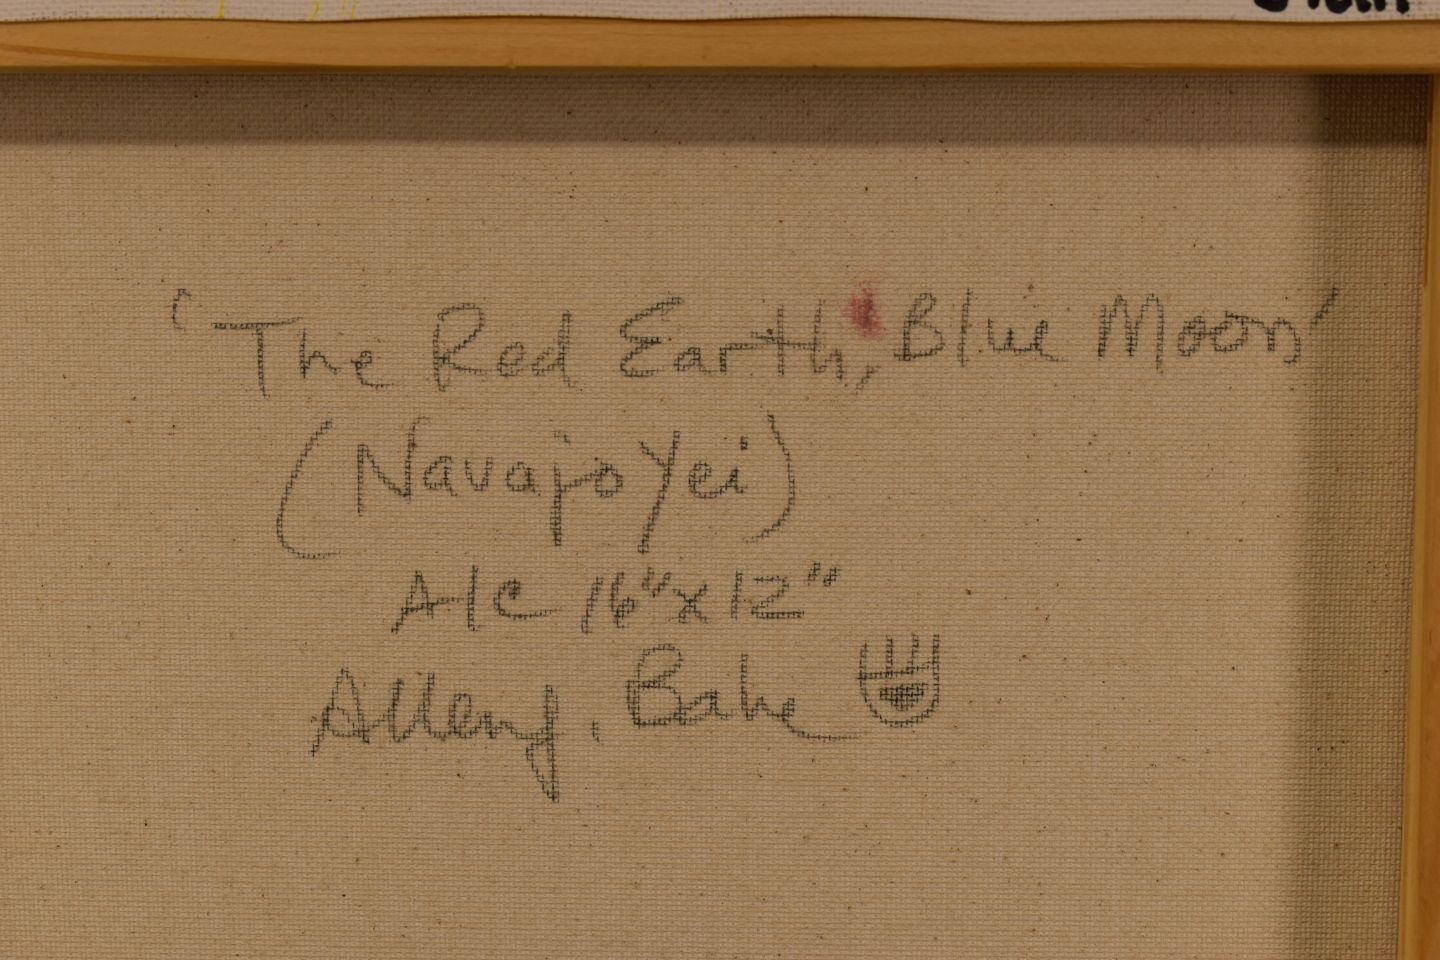 'The Red Earth, Blue Moon'
(Navajo Yei)
A/C 16"x12"
Alleny. Bahe